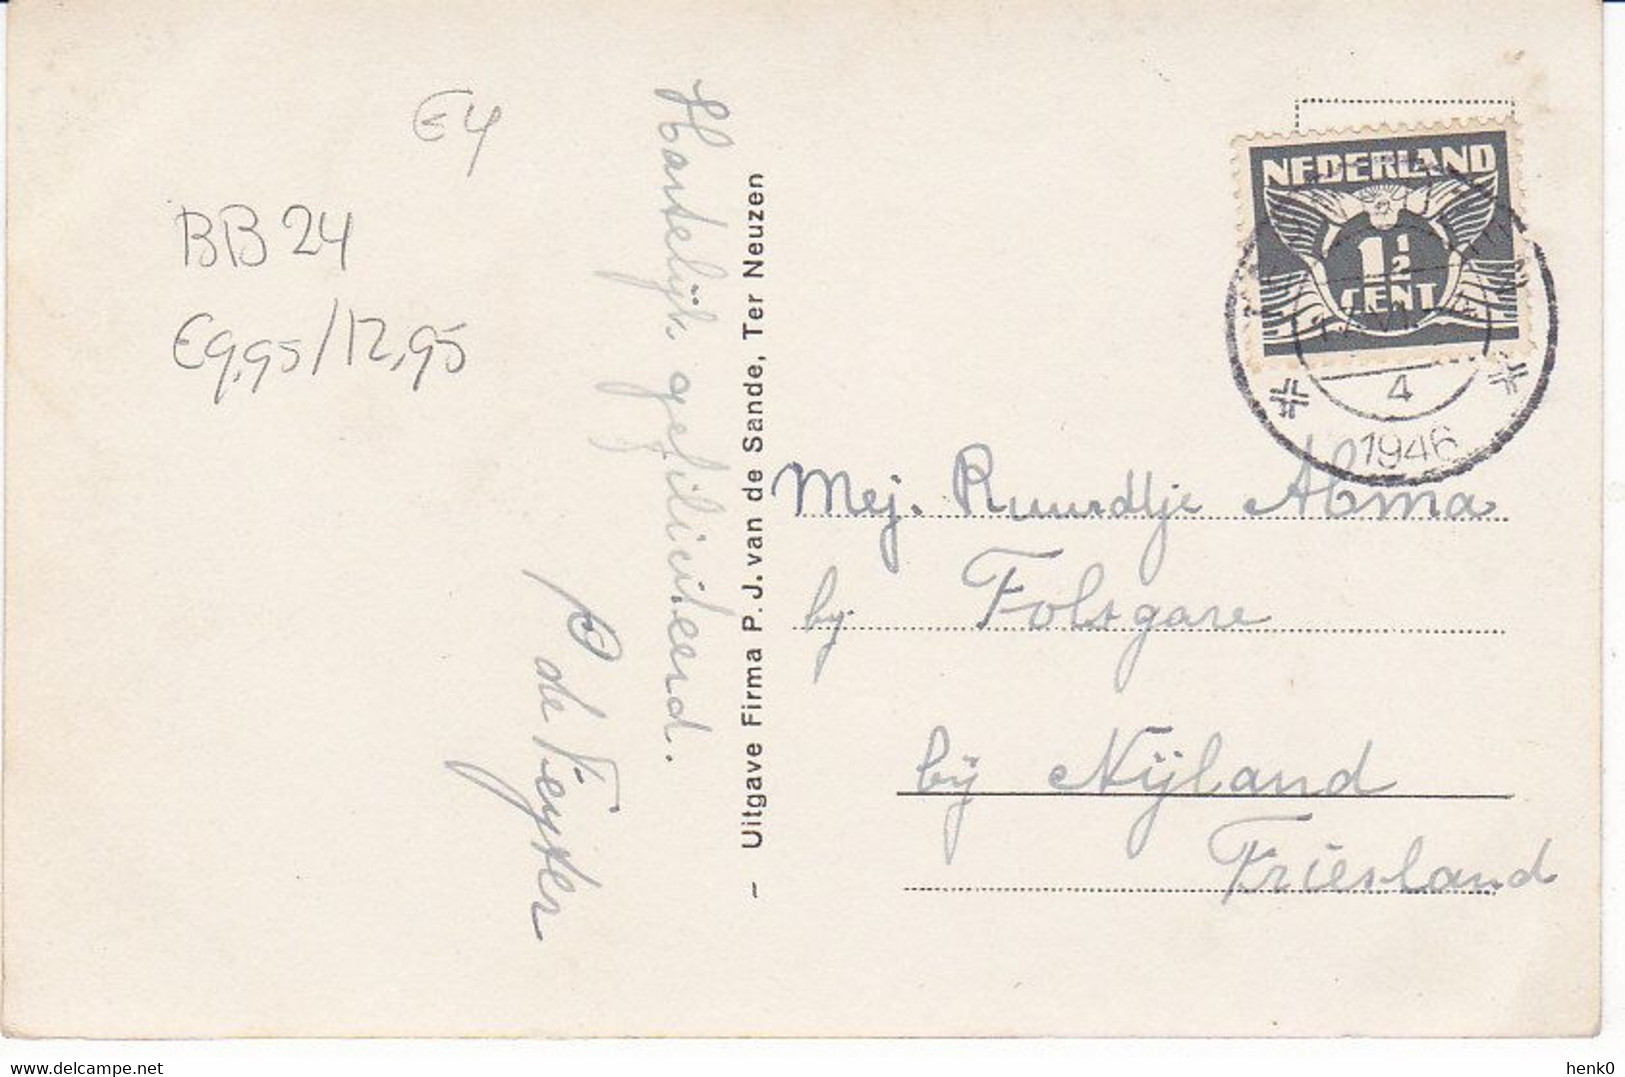 E4
BB 24
€9,95/12,95
Hartelijk gefiliciteerd.
P de Feyter
- Uitgave Firma P. J. van de Sande, Ter Neuzen
NEDERLAND
1½
CENT
4
1946
Mej. Ruurdtje Abma
by Folsgare
bij Nijland
Friesland
henk0